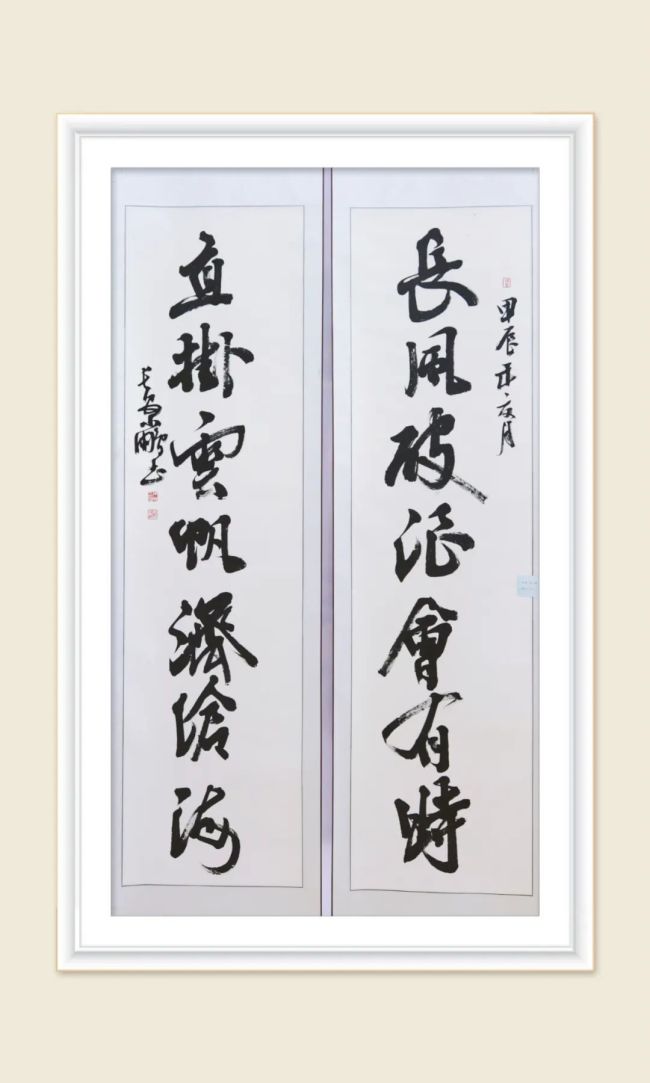 甲辰年夏月
長風破浪會有時
直掛雲帆濟滄海